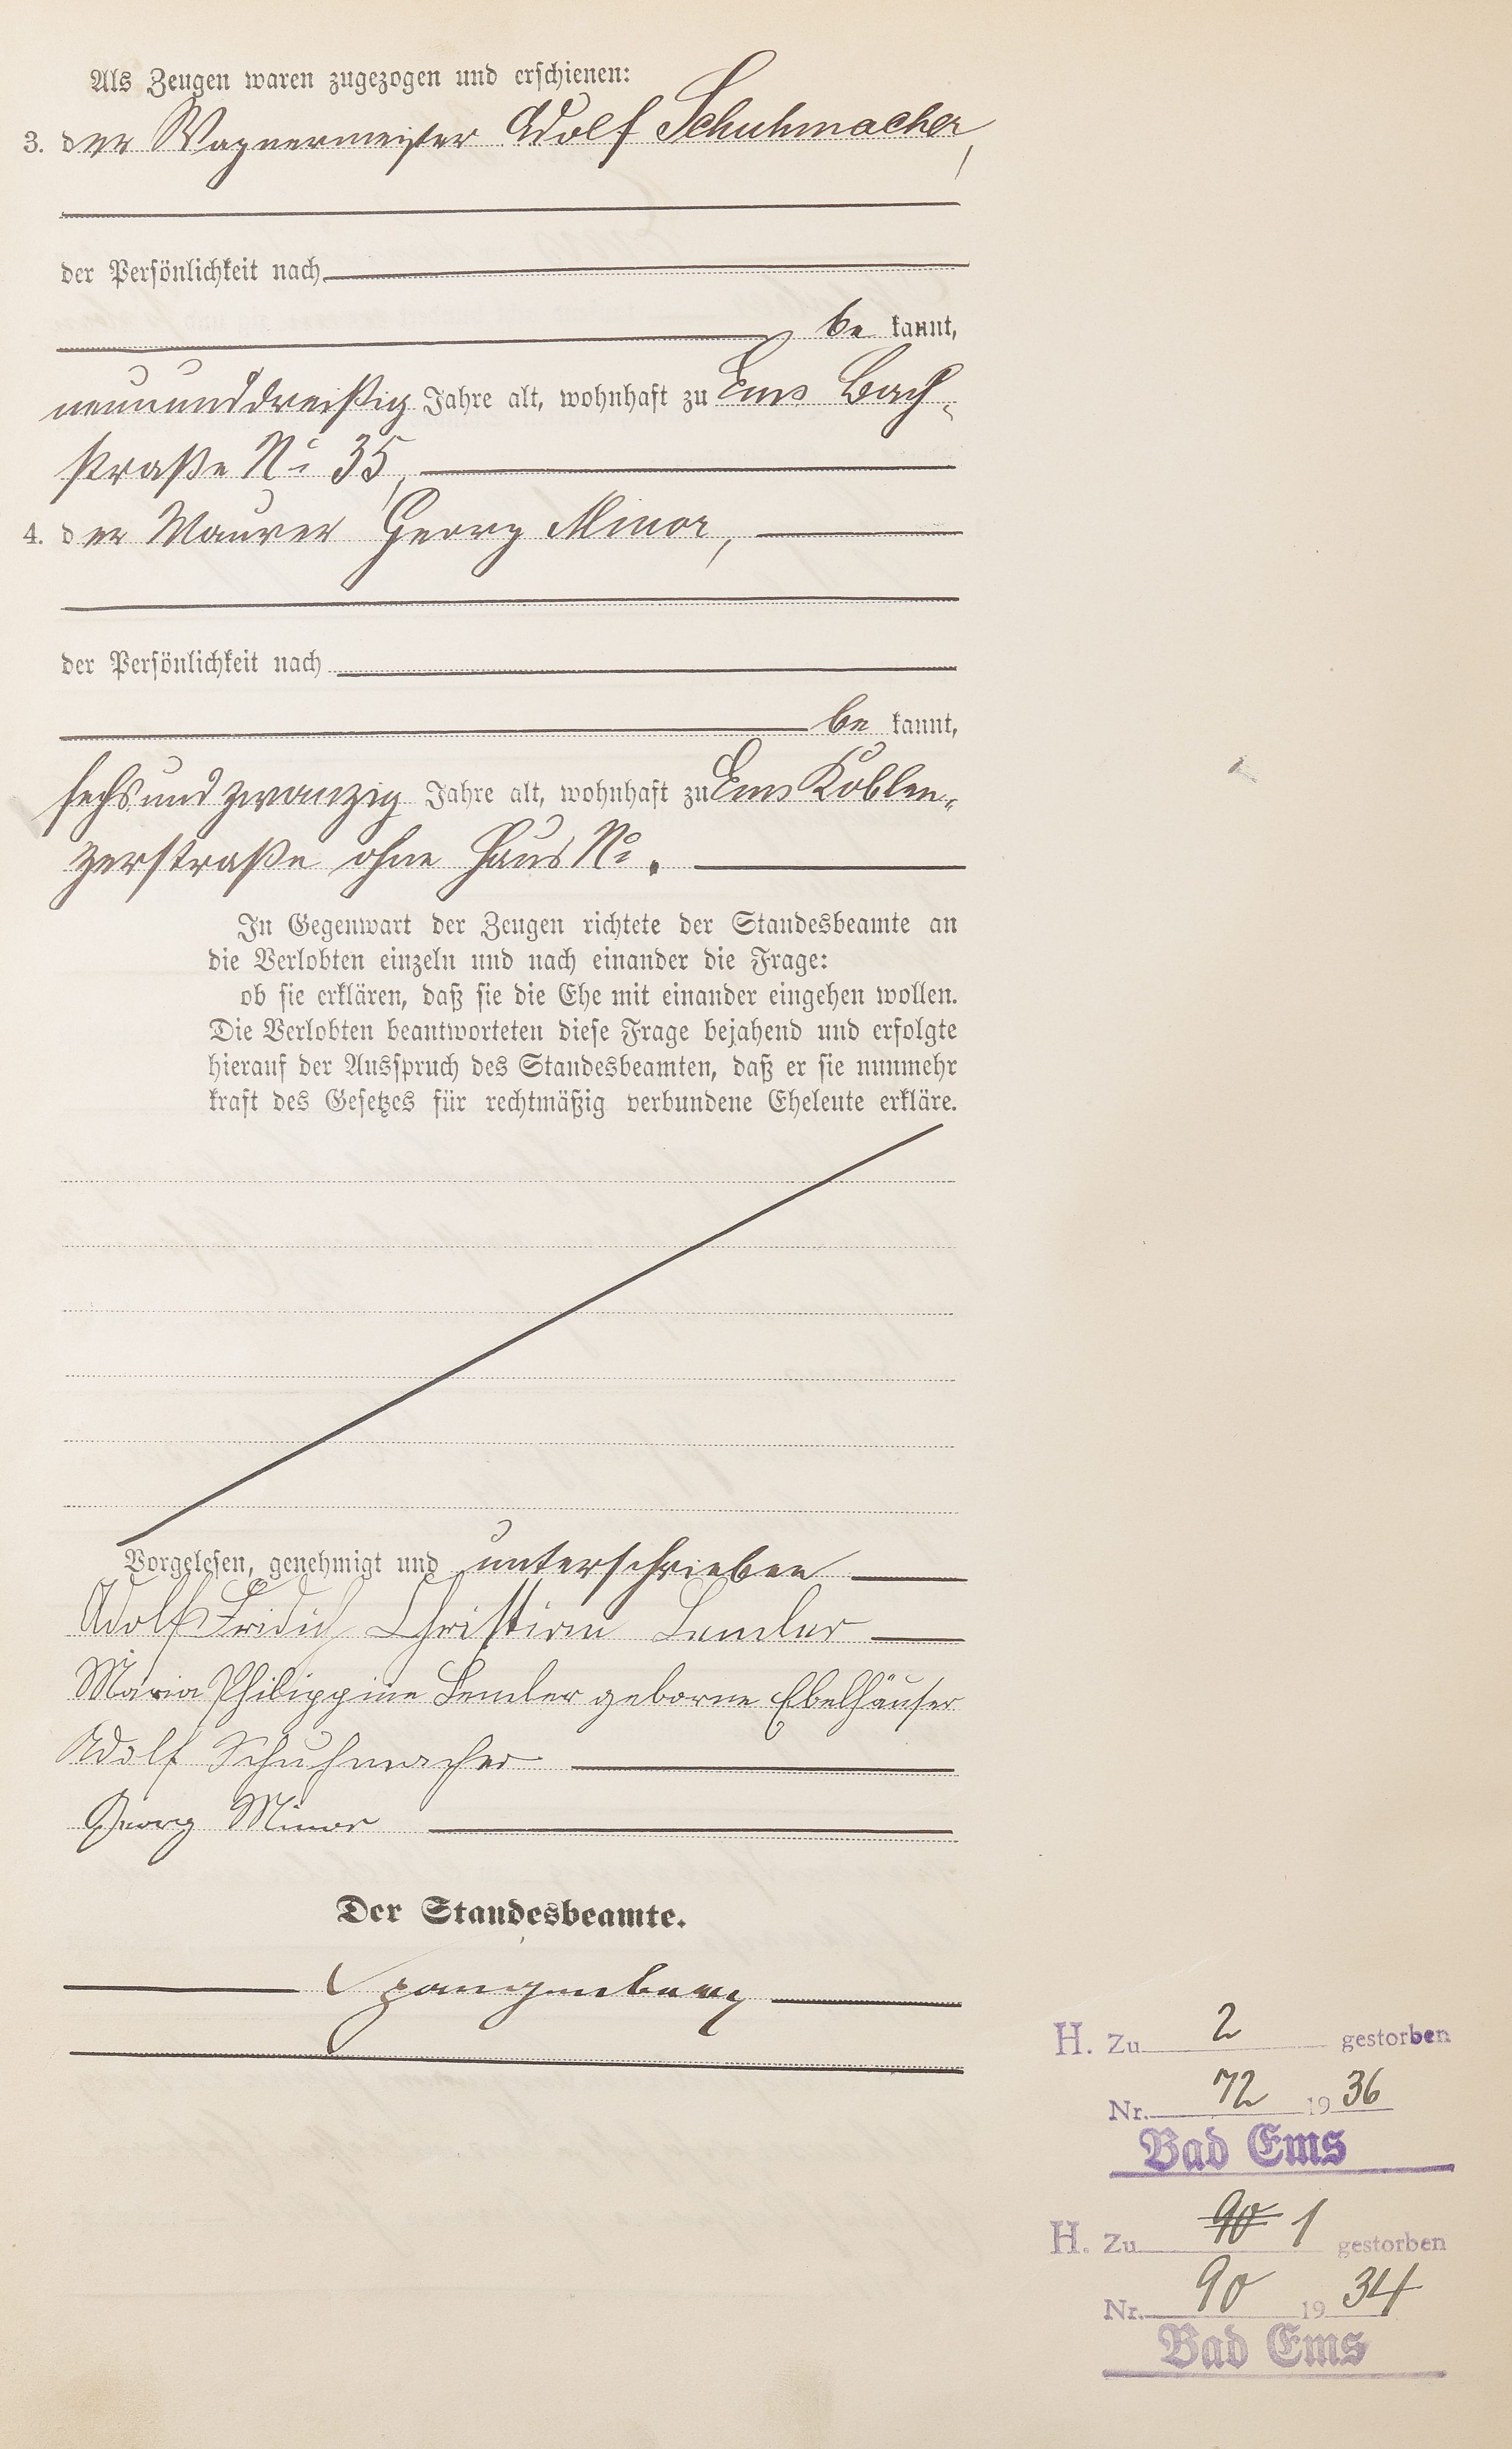 Als Zeugen waren zugezogen und erschienen:
3. der Wagnermeister Adolf Schuhmacher,
der Persönlichkeit nach
be kannt,
neununddreißig Jahre alt, wohnhaft zu Ems Bach-
straße No 35,
4. der Maurer Georg Minor,
der Persönlichkeit nach
be kannt,
sechsundzwanzig Jahre alt, wohnhaft zu Ems Koblen-
zerstraße ohne Haus No.
In Gegenwart der Zeugen richtete der Standesbeamte an
die Verlobten einzeln und nach einander die Frage:
ob sie erklären, daß sie die Ehe mit einander eingehen wollen.
Die Verlobten beantworteten diese Frage bejahend und erfolgte
hierauf der Ausspruch des Standesbeamten, daß er sie nunmehr
kraft des Gesetzes für rechtmäßig verbundene Eheleute erkläre.
Vorgelesen, genehmigt und unterschrieben
Adolf Fridich Christian Lemler
Maria Philippine Lemler geborne Ebelhäuser
Adolf Schuhmacher
Georg Minor
Der Standesbeamte.
Spangenberg
H. Zu 2 gestorben
Nr. 72 1936
Bad Ems
H. Zu 90 1 gestorben
Nr. 90 1934
Bad Ems